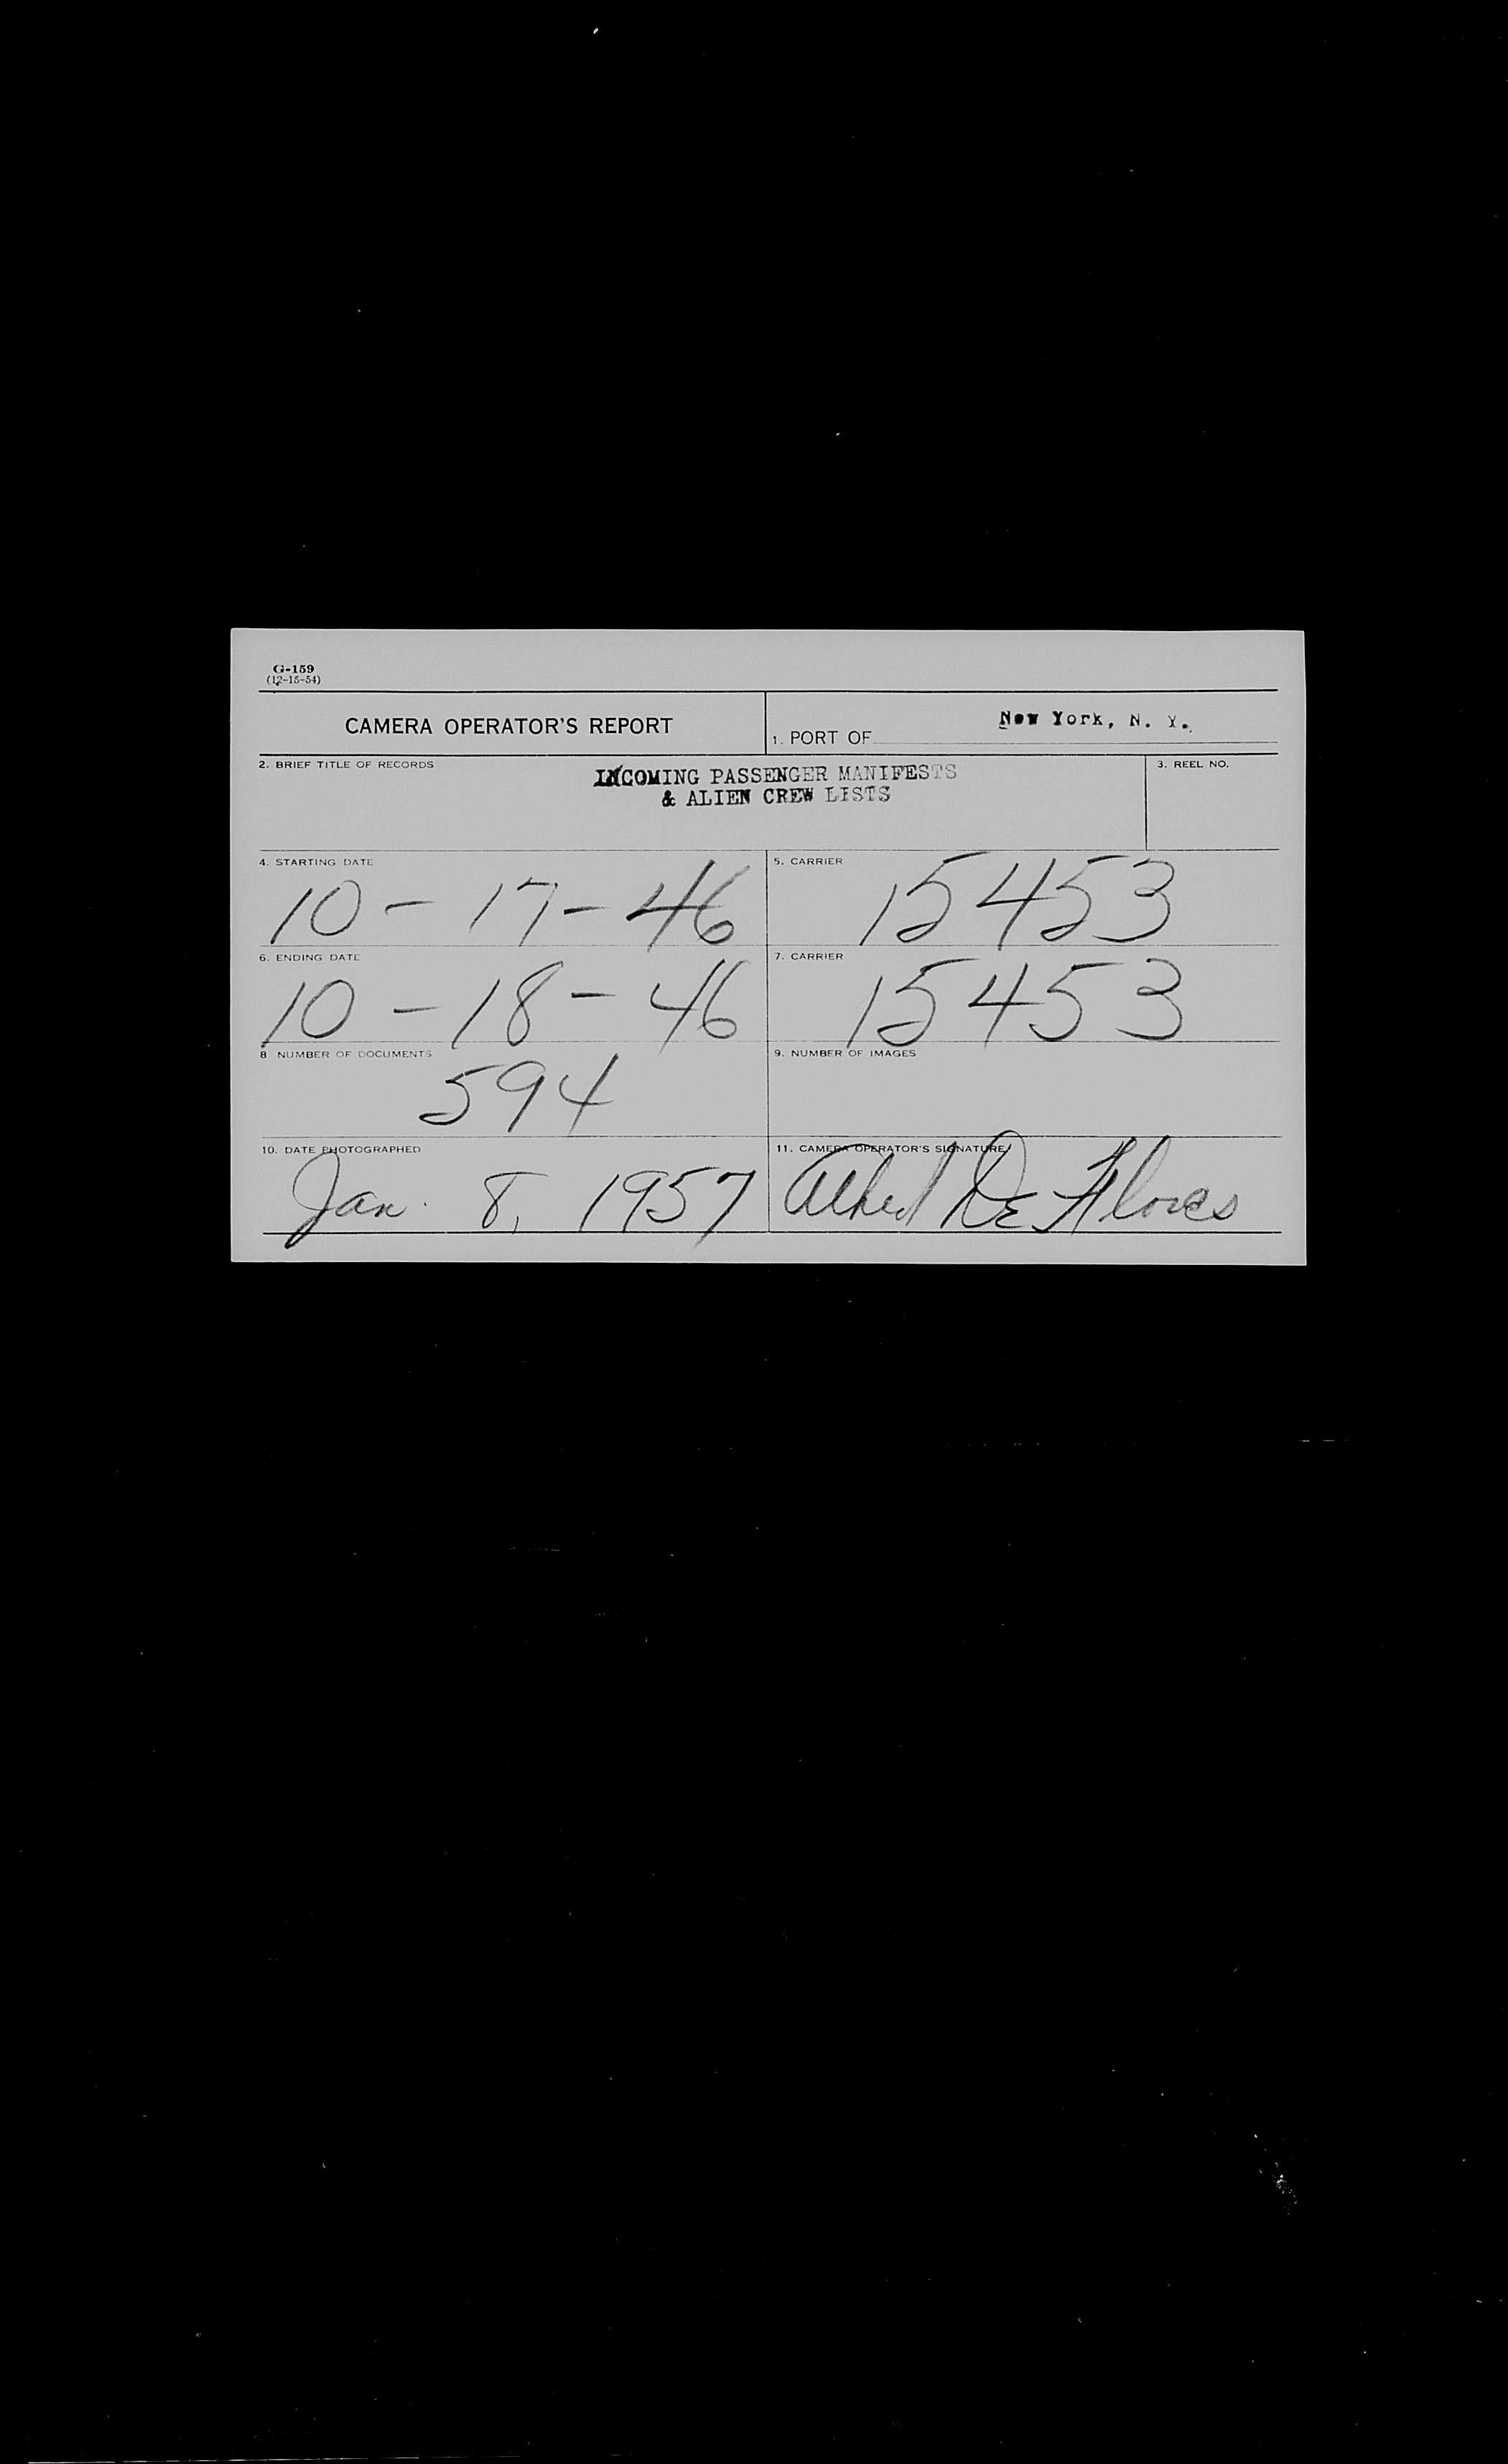 G-159
(12-15-54)
CAMERA OPERATOR'S REPORT
1. PORT OF New York, N. Y.
2. BRIEF TITLE OF RECORDS
INCOMING PASSENGER MANIFESTS
& ALIEN CREW LISTS
3. REEL NO.
4. STARTING DATE
10-17-46
5. CARRIER
15453
6. ENDING DATE
10-18-46
7. CARRIER
15453
8 NUMBER OF DOCUMENTS
594
9. NUMBER OF IMAGES
10. DATE PHOTOGRAPHED
Jan. 8, 1957
11. CAMERA OPERATOR'S SIGNATURE
Alfred De Flores